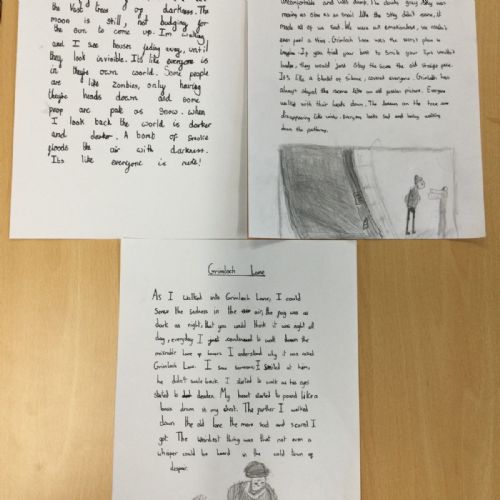 the Vast trees of darkness. The
moon is still, not budging for
the sun to come up. Im walking
and I see houses fading away, until
they look invisible. Its like everyone is
in their own world. Some people
are like Zombies, only having
their heads down and some
are pale as snow. When
I look back the world is darker
and darker. A bomb of smoke
floods the air with darkness.
Its like everyone is mute!
uncomfortable and was dark. The clouds grey they was
moving as slow as a snail like the
made all of us feel. We were not emotionless, we couldn't
even pull a Grimloch Lane was the worst place to
imagine. If you tried your best to smile your lips wouldn't
budge, they would just stay the same the old straight
It's like a blanket of silence covered everyone. Grimloch has
always stayed the same like an old person picture. Everyone
walked with their heads down. The
disappearing like everyone looks sad and
down the
Grimloch Lane
As I walked into Grimloch Lane, I could
sense the sadness in the air, the was as
dark as night, that you would think it was night all
day, everyday I just continued to walk down the
miserable lane of I understand why it was called
Grimloch Lane. I saw someone, I smiled at him,
he didn't smile back. I started to walk as his eyes
started to darken. My heart started to pound like a
bass drum in my chest. The further I walked
down the old lane the more sad and scared I
got. The weirdest thing was that not even a
whisper could be heard in the cold town of
despair.